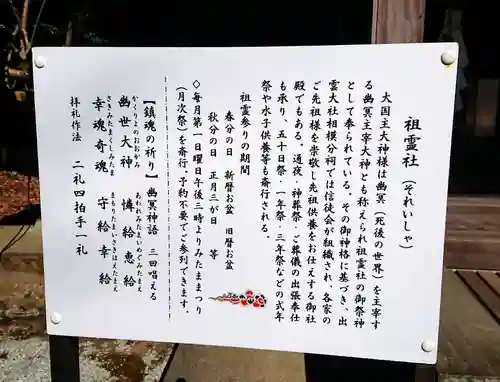 祖霊社(それいしゃ)
大国主大神様は幽冥(死後の世界)を主宰す
る幽冥主宰大神とも称えられ祖霊社の御祭神
として奉られている。その御神格に基づき、出
雲大社相模分祠では信徒会が組織され、各家の
ご先祖様を崇敬し先祖供養をお仕えする御社
殿でもある。通夜、神葬祭・ご葬儀の出張奉仕
も承り、五十日祭・一年祭・三年祭などの式年
祭や水子供養等も斎行される。
祖霊参りの期間
春分の日 新暦お盆 旧暦お盆
秋分の日 正月三が日 等
◇毎月第一日曜日午後三時よりみたままつり
(月次祭)を斎行。予約不要でご参列できます。
【鎮魂の祈り】幽冥神語 三回唱える
かくりよのおおかみ あわれみたまいめぐみたまえ
幽世大神 憐給 恵給
さきみたまくしみたま まもりたまいさきはえたまえ
幸魂奇魂 守給 幸給
拝礼作法 二礼四拍手一礼